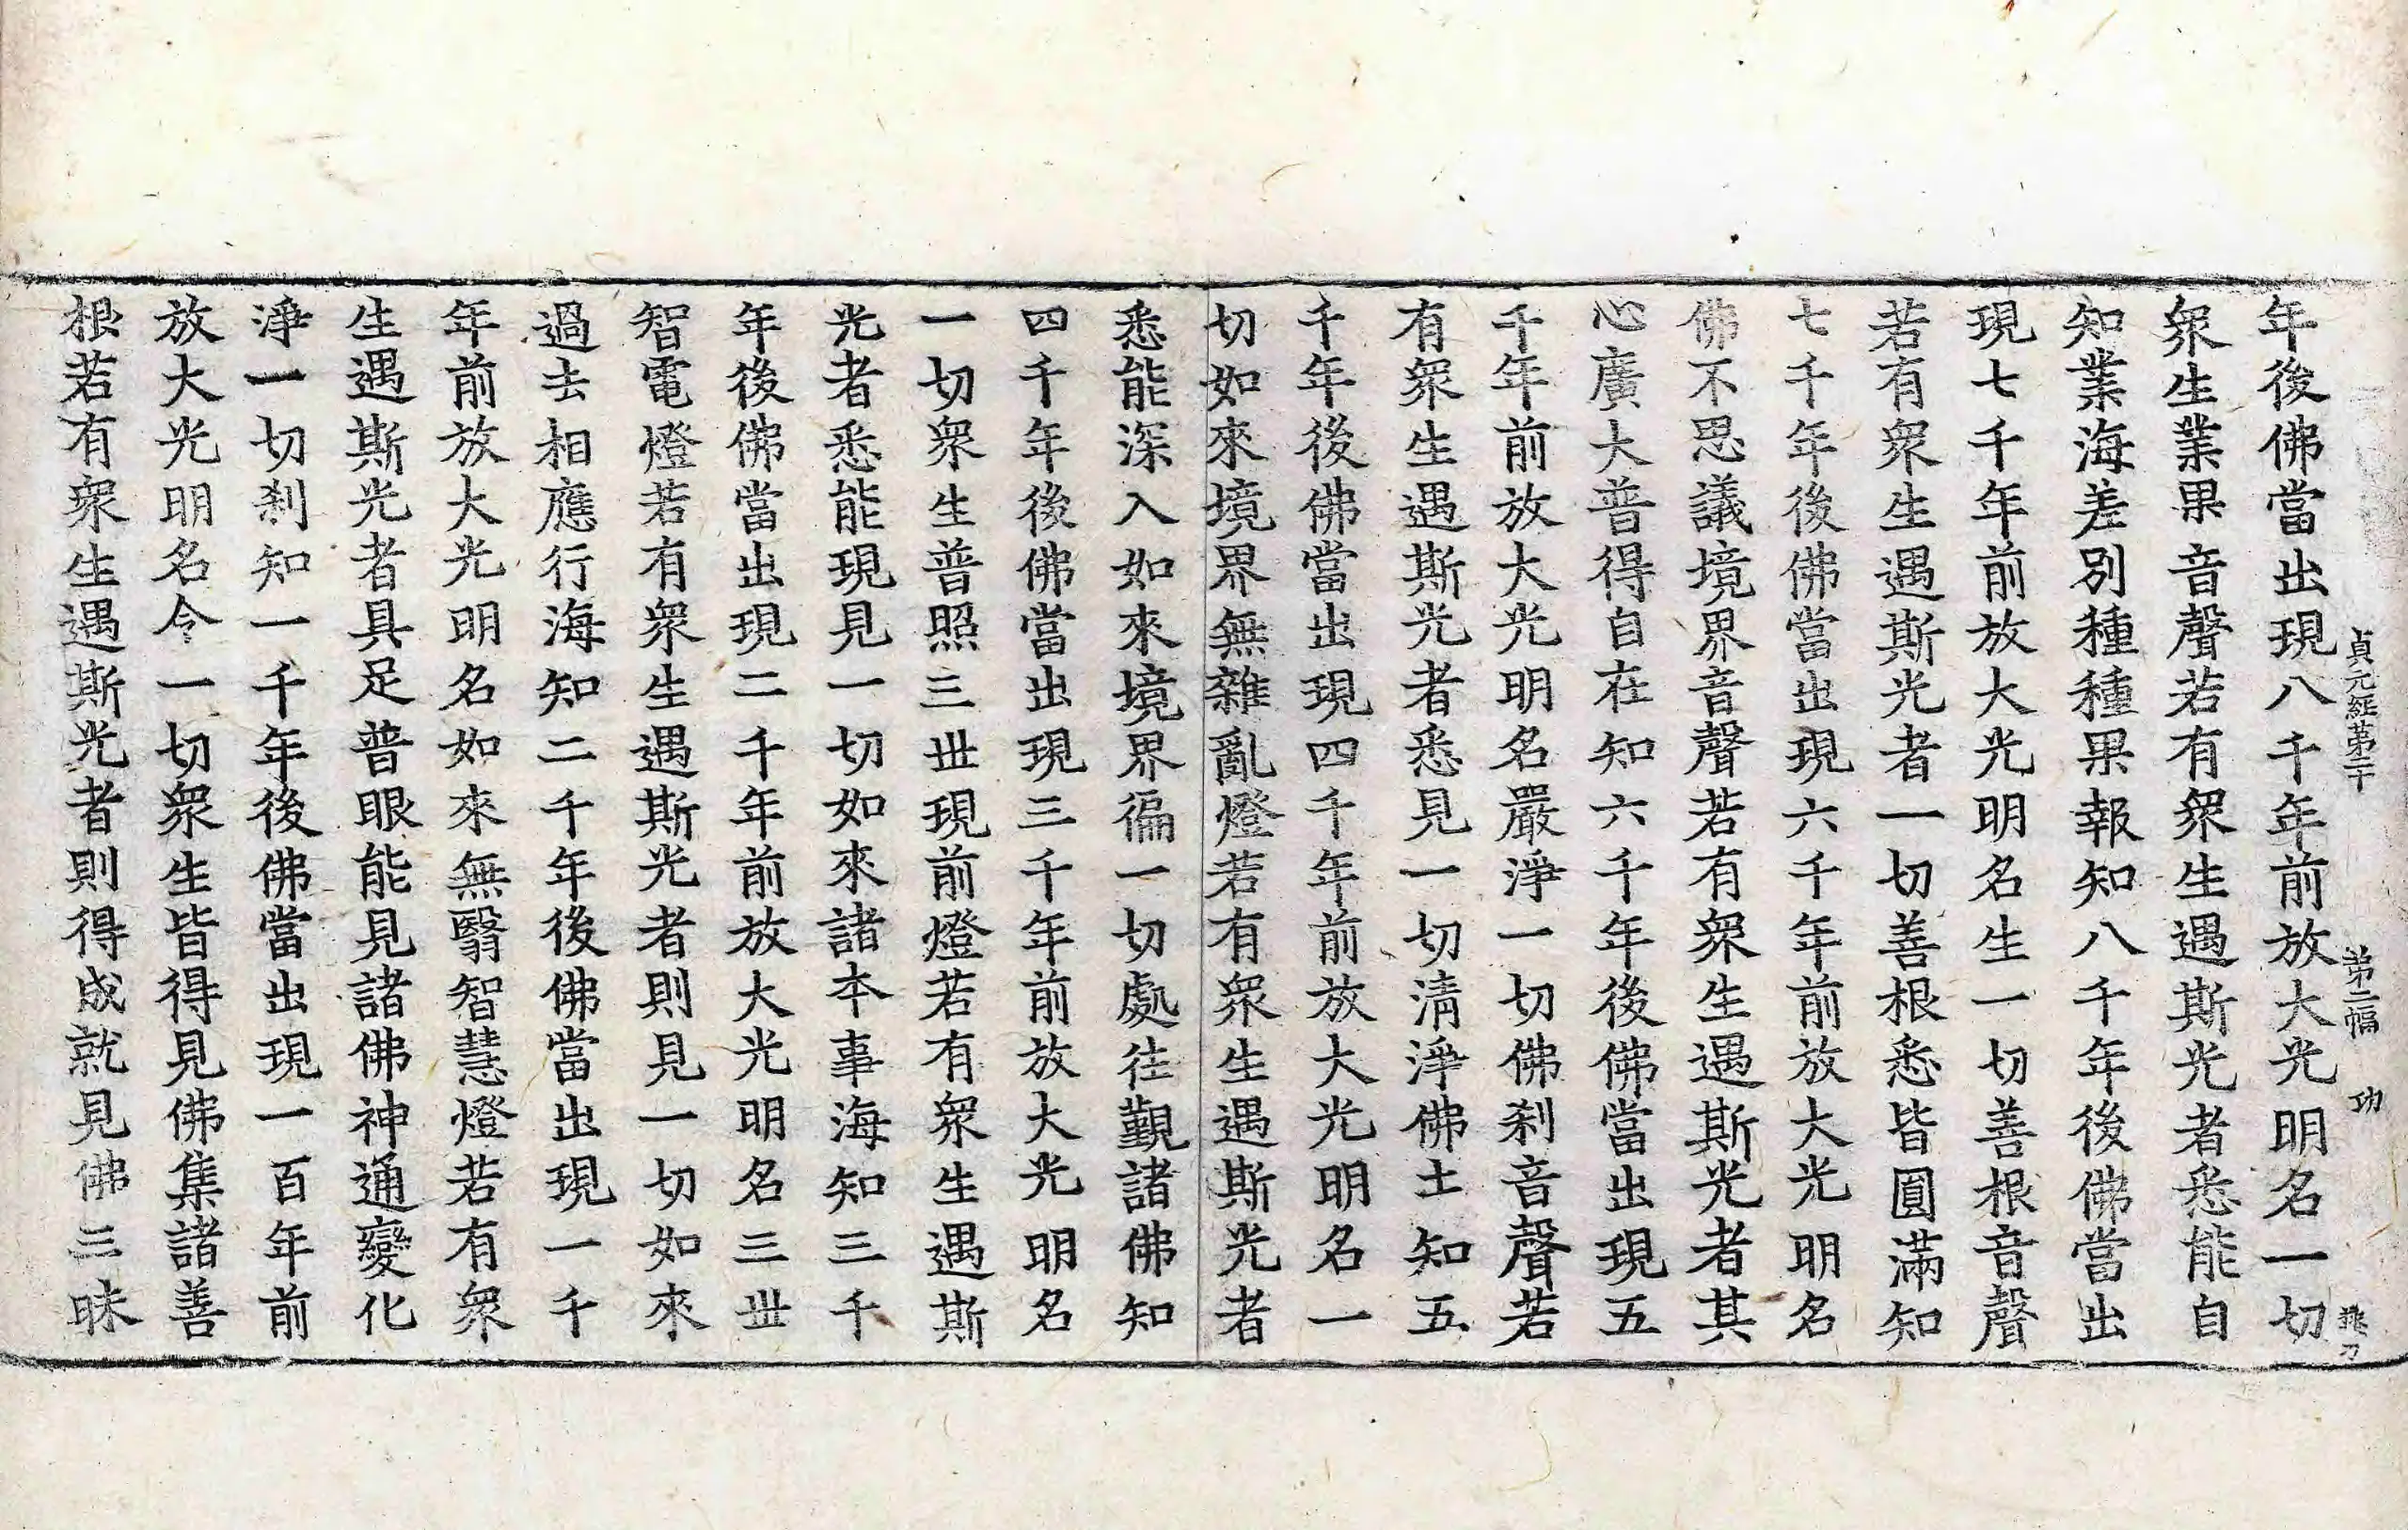 貞元經第二十 第二幅 功
年後佛當出現八千年前放大光明名一切
衆生業果音聲若有衆生遇斯光者悉能自
知業海差別種種果報知八千年後佛當出
現七千年前放大光明名生一切善根音聲
若有衆生遇斯光者一切善根悉皆圓滿知
七千年後佛當出現六千年前放大光明名
佛不思議境界音聲若有衆生遇斯光者其
心廣大普得自在知六千年後佛當出現五
千年前放大光明名嚴淨一切佛刹音聲若
有衆生遇斯光者悉見一切清淨佛土知五
千年後佛當出現四千年前放大光明名一
切如來境界無雜亂燈若有衆生遇斯光者
悉能深入如來境界徧一切處往覲諸佛知
四千年後佛當出現三千年前放大光明名
一切衆生普照三世現前燈若有衆生遇斯
光者悉能現見一切如來諸本事海知三千
年後佛當出現二千年前放大光明名三世
智電燈若有衆生遇斯光者則見一切如來
過去相應行海知二千年後佛當出現一千
年前放大光明名如來無翳智慧燈若有衆
生遇斯光者具足普眼能見諸佛神通變化
淨一切刹知一千年後佛當出現一百年前
放大光明名令一切衆生皆得見佛集諸善
根若有衆生遇斯光者則得成就見佛三昧